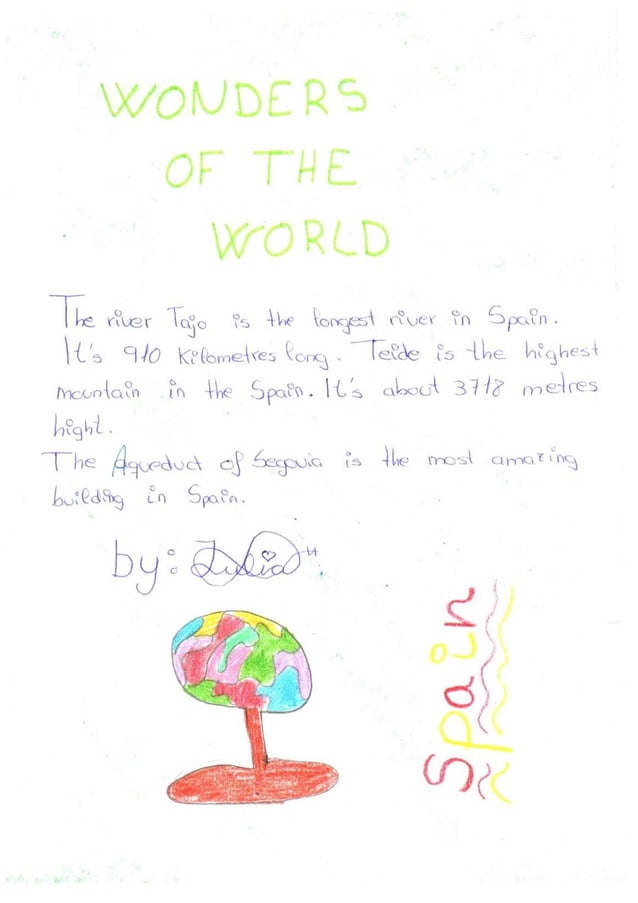 WONDERS
OF THE
WORLD
The river Tajo is the longest river in Spain.
It's 910 Kilometres long. Teide is the highest
mountain in the Spain. It's about 3718 metres
hight.
The Aqueduct of Segovia is the most amazing
building in Spain.
by: Julia
Spain